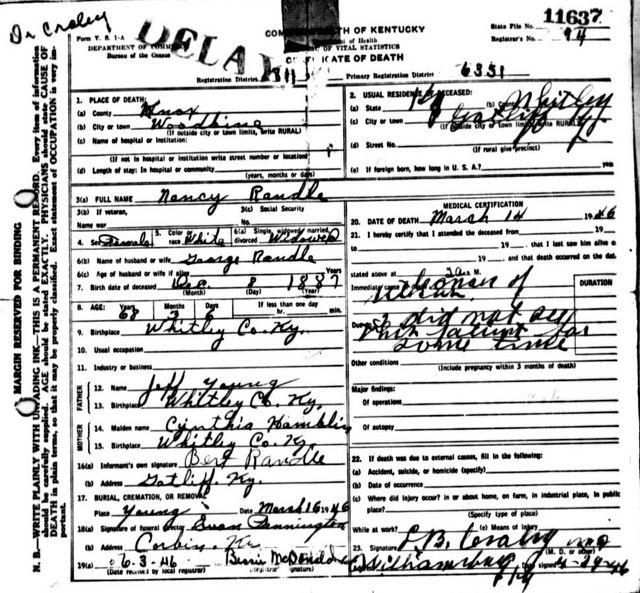 Dr Croley
11637
Form V. S. 1-A
COMMONWEALTH OF KENTUCKY
State File No.
DELAYED
DEPARTMENT OF COMMERCE
Department of Health
Registrar's No. 94
Bureau of the Census
BUREAU OF VITAL STATISTICS
CERTIFICATE OF DEATH
Registration District 1311
Primary Registration District 6351
MARGIN RESERVED FOR BINDING
N. B.—WRITE PLAINLY WITH UNFADING INK—THIS IS A PERMANENT RECORD. Every item of information
should be carefully supplied. AGE should be stated EXACTLY. PHYSICIANS should state CAUSE OF
DEATH in plain terms, so that it may be properly classified. Exact statement of OCCUPATION is very im-
portant.
1. PLACE OF DEATH:
(a) County Knox
(b) City or town Woodbine
(If outside city or town limits, write RURAL)
(c) Name of hospital or institution:
(If not in hospital or institution write street number or location)
(d) Length of stay: In hospital or community
(years, months or days)
2. USUAL RESIDENCE OF DECEASED:
(a) State Ky (b) County Whitley
(c) City or town Gatliff Ky
(If outside city or town limits, write RURAL)
(d) Street No.
(If rural give precinct)
(e) If foreign born, how long in U. S. A.? years
3(a) FULL NAME Nancy Randle
3(b) If veteran,
Name war
3(c) Social Security
No.
4. Sex Female
5. Color or
race White
6(a) Single, widowed, married,
divorced Widowed
6(b) Name of husband or wife George Randle
6(c) Age of husband or wife if alive
7. Birth date of deceased Dec 8 1887
(Month) (Day) (Year)
8. AGE: Years Months Days If less than one day
68 3 6 hr. min.
9. Birthplace Whitley Co. Ky.
10. Usual occupation
11. Industry or business
FATHER
12. Name Jeff Young
13. Birthplace Whitley Co. Ky.
MOTHER
14. Maiden name Cynthia Hamblin
15. Birthplace Whitley Co. Ky
16(a) Informant's own signature Bert Randle
(b) Address Gatliff. Ky.
17. BURIAL, CREMATION, OR REMOVAL
Place Young Date March 16 1946
18(a) Signature of funeral director Pennington
(b) Address Corbin, Ky
19(a) 6-3-46 Bessie McDonald
(Date received by local registrar) (Registrar's signature)
MEDICAL CERTIFICATION
20. DATE OF DEATH March 14 1946
21. I hereby certify that I attended the deceased from 19
to 19 that I last saw him alive
19 and that death occurred on the date
stated above at M.
Immediate cause
DURATION
I did not see
this patient for
some time
Other conditions
(Include pregnancy within 3 months of death)
Major findings:
Of operations
Of autopsy
22. If death was due to external causes, fill in the following:
(a) Accident, suicide, or homicide (specify)
(b) Date of occurrence
(c) Where did injury occur? in or about home, on farm, in industrial place, in public
place?
(Specify type of place)
While at work? (e) Means of injury
23. Signature Croley MD
(M. D. or other)
Williamsburg Ky Date signed